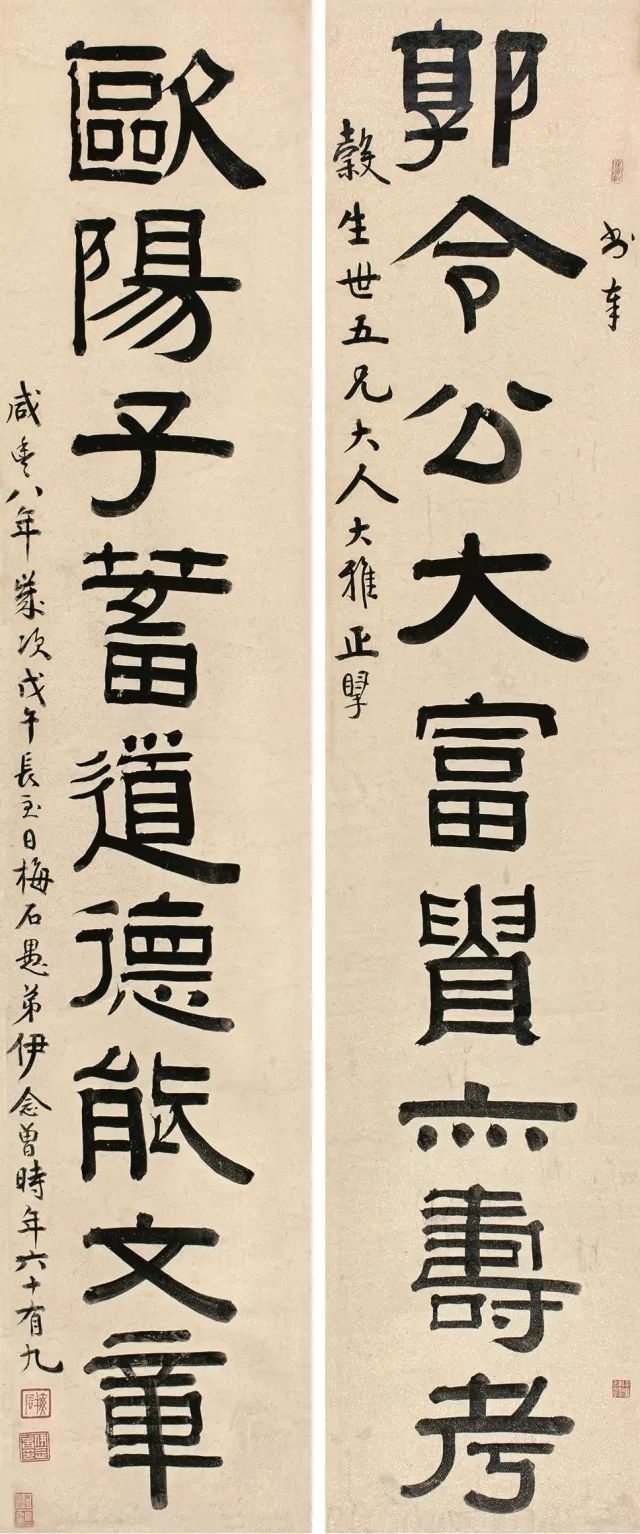 郭令公大富貴亦壽考
書奉
穀生世五兄大人大雅正掔
歐陽子蓄道德能文章
咸豐八年歲次戊午長至日梅石愚弟伊念曾時年六十有九